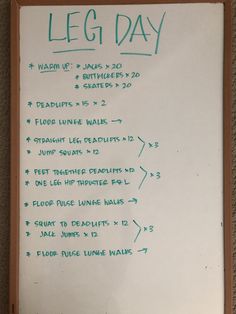 LEG DAY
* WARM UP: * JACKS × 20
* BUTTKICKERS × 20
* SKATERS × 20
* DEADLIFTS × 15 × 2
* FLOOR LUNGE WALKS →
* STRAIGHT LEG DEADLIFTS × 12
* JUMP SQUATS × 12 > × 3
* FEET TOGETHER DEADLIFTS × 12
* ONE LEG HIP THRUSTER R & L > × 3
* FLOOR PULSE LUNGE WALKS →
* SQUAT TO DEADLIFTS × 12
* JACK JUMPS × 12 > × 3
* FLOOR PULSE LUNGE WALKS →